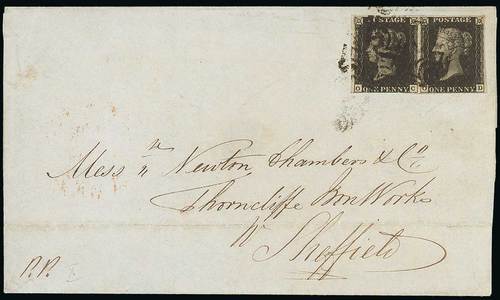 POSTAGE POSTAGE
O ONE PENNY C O ONE PENNY D
Mess rs Newton Chambers & Co
Thorncliffe Iron Works
Nr Sheffield
P.P.